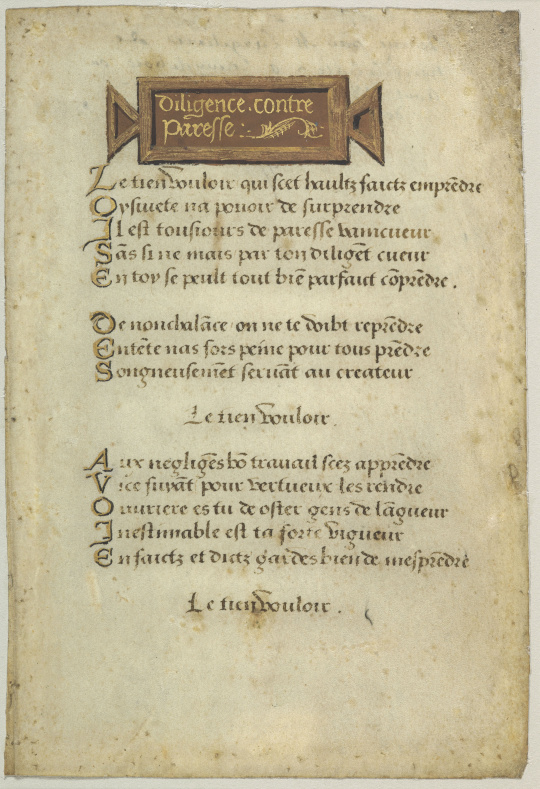 Diligence . contre
Paresse :
Le tien vouloir qui scet haultz faictz emprẽdre
Oysivete na povoir de surprendre
Il est tousiours de paresse vaincueur
Sãs si ne mais par ton diligẽt cueur
En toy se peult tout biẽ parfaict cõprẽdre .
De nonchalãce on ne te doibt reprẽdre
Entẽte nas fors peine pour tous prẽdre
Songneusemẽt servãt au createur
Le tien vouloir .
Aux negligẽs bõ travail scez apprẽdre
Vice fuyãt pour vertueux les rendre
Ouvriere es tu de oster gens de lãgueur
Inestimable est ta forte vigueur
En faictz et dictz gardes bien de mesprẽdre
Le tien vouloir .